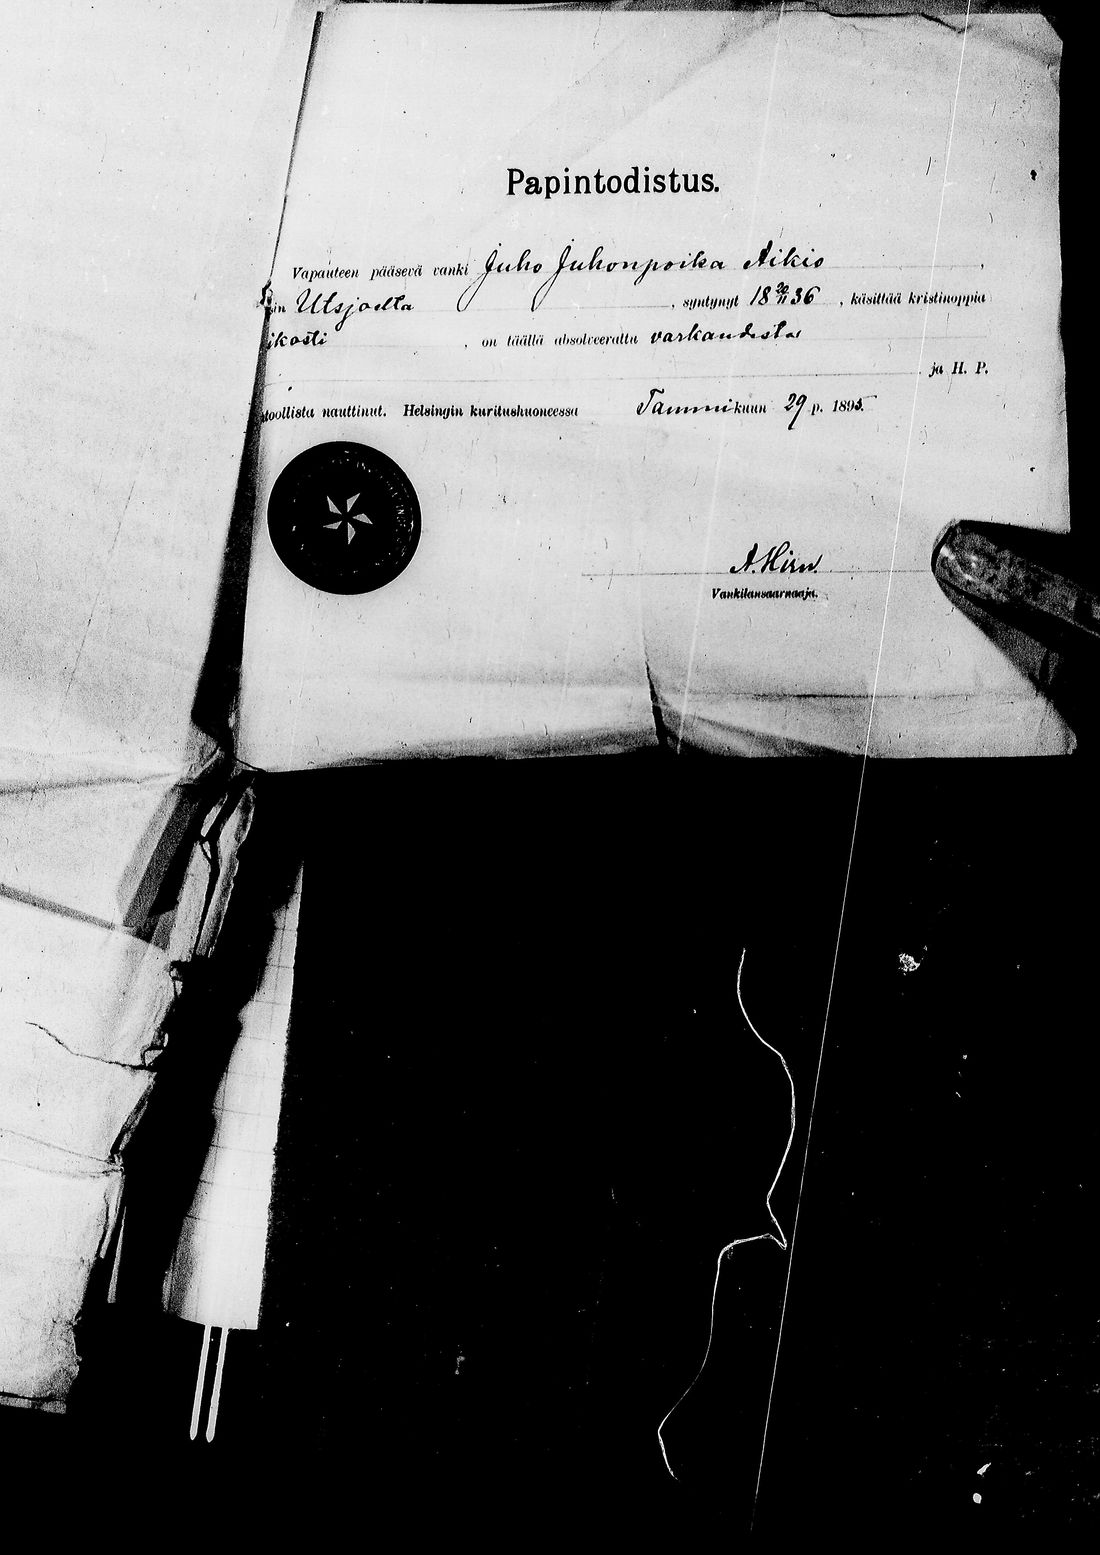 Papintodistus.
Vapauteen pääsevä vanki Juho Juhonpoika Aikio,
sin Utsjoelta, syntynyt 18 20/11 36, käsittää kristinoppia
ikosti, on täällä absolveerattu varkaudesta
ja H. P.
toollista nauttinut. Helsingin kuritushuoneessa Tammikuun 29 p. 1895.
A. Hirn.
Vankilansaarnaaja.